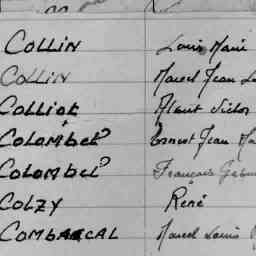 COLLIN Louis Marie
COLLIN Marcel Jean
COLLIOT Albert Victor
COLOMBEL? Ernest Jean
COLOMBEL? François
COLZY René
COMBASCAL Marcel Louis